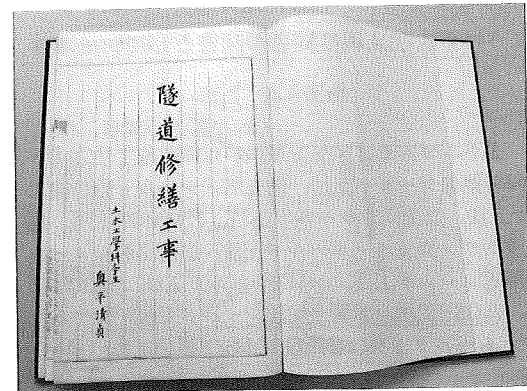 隧道修繕工事
土木工學科学生
奥平清貞